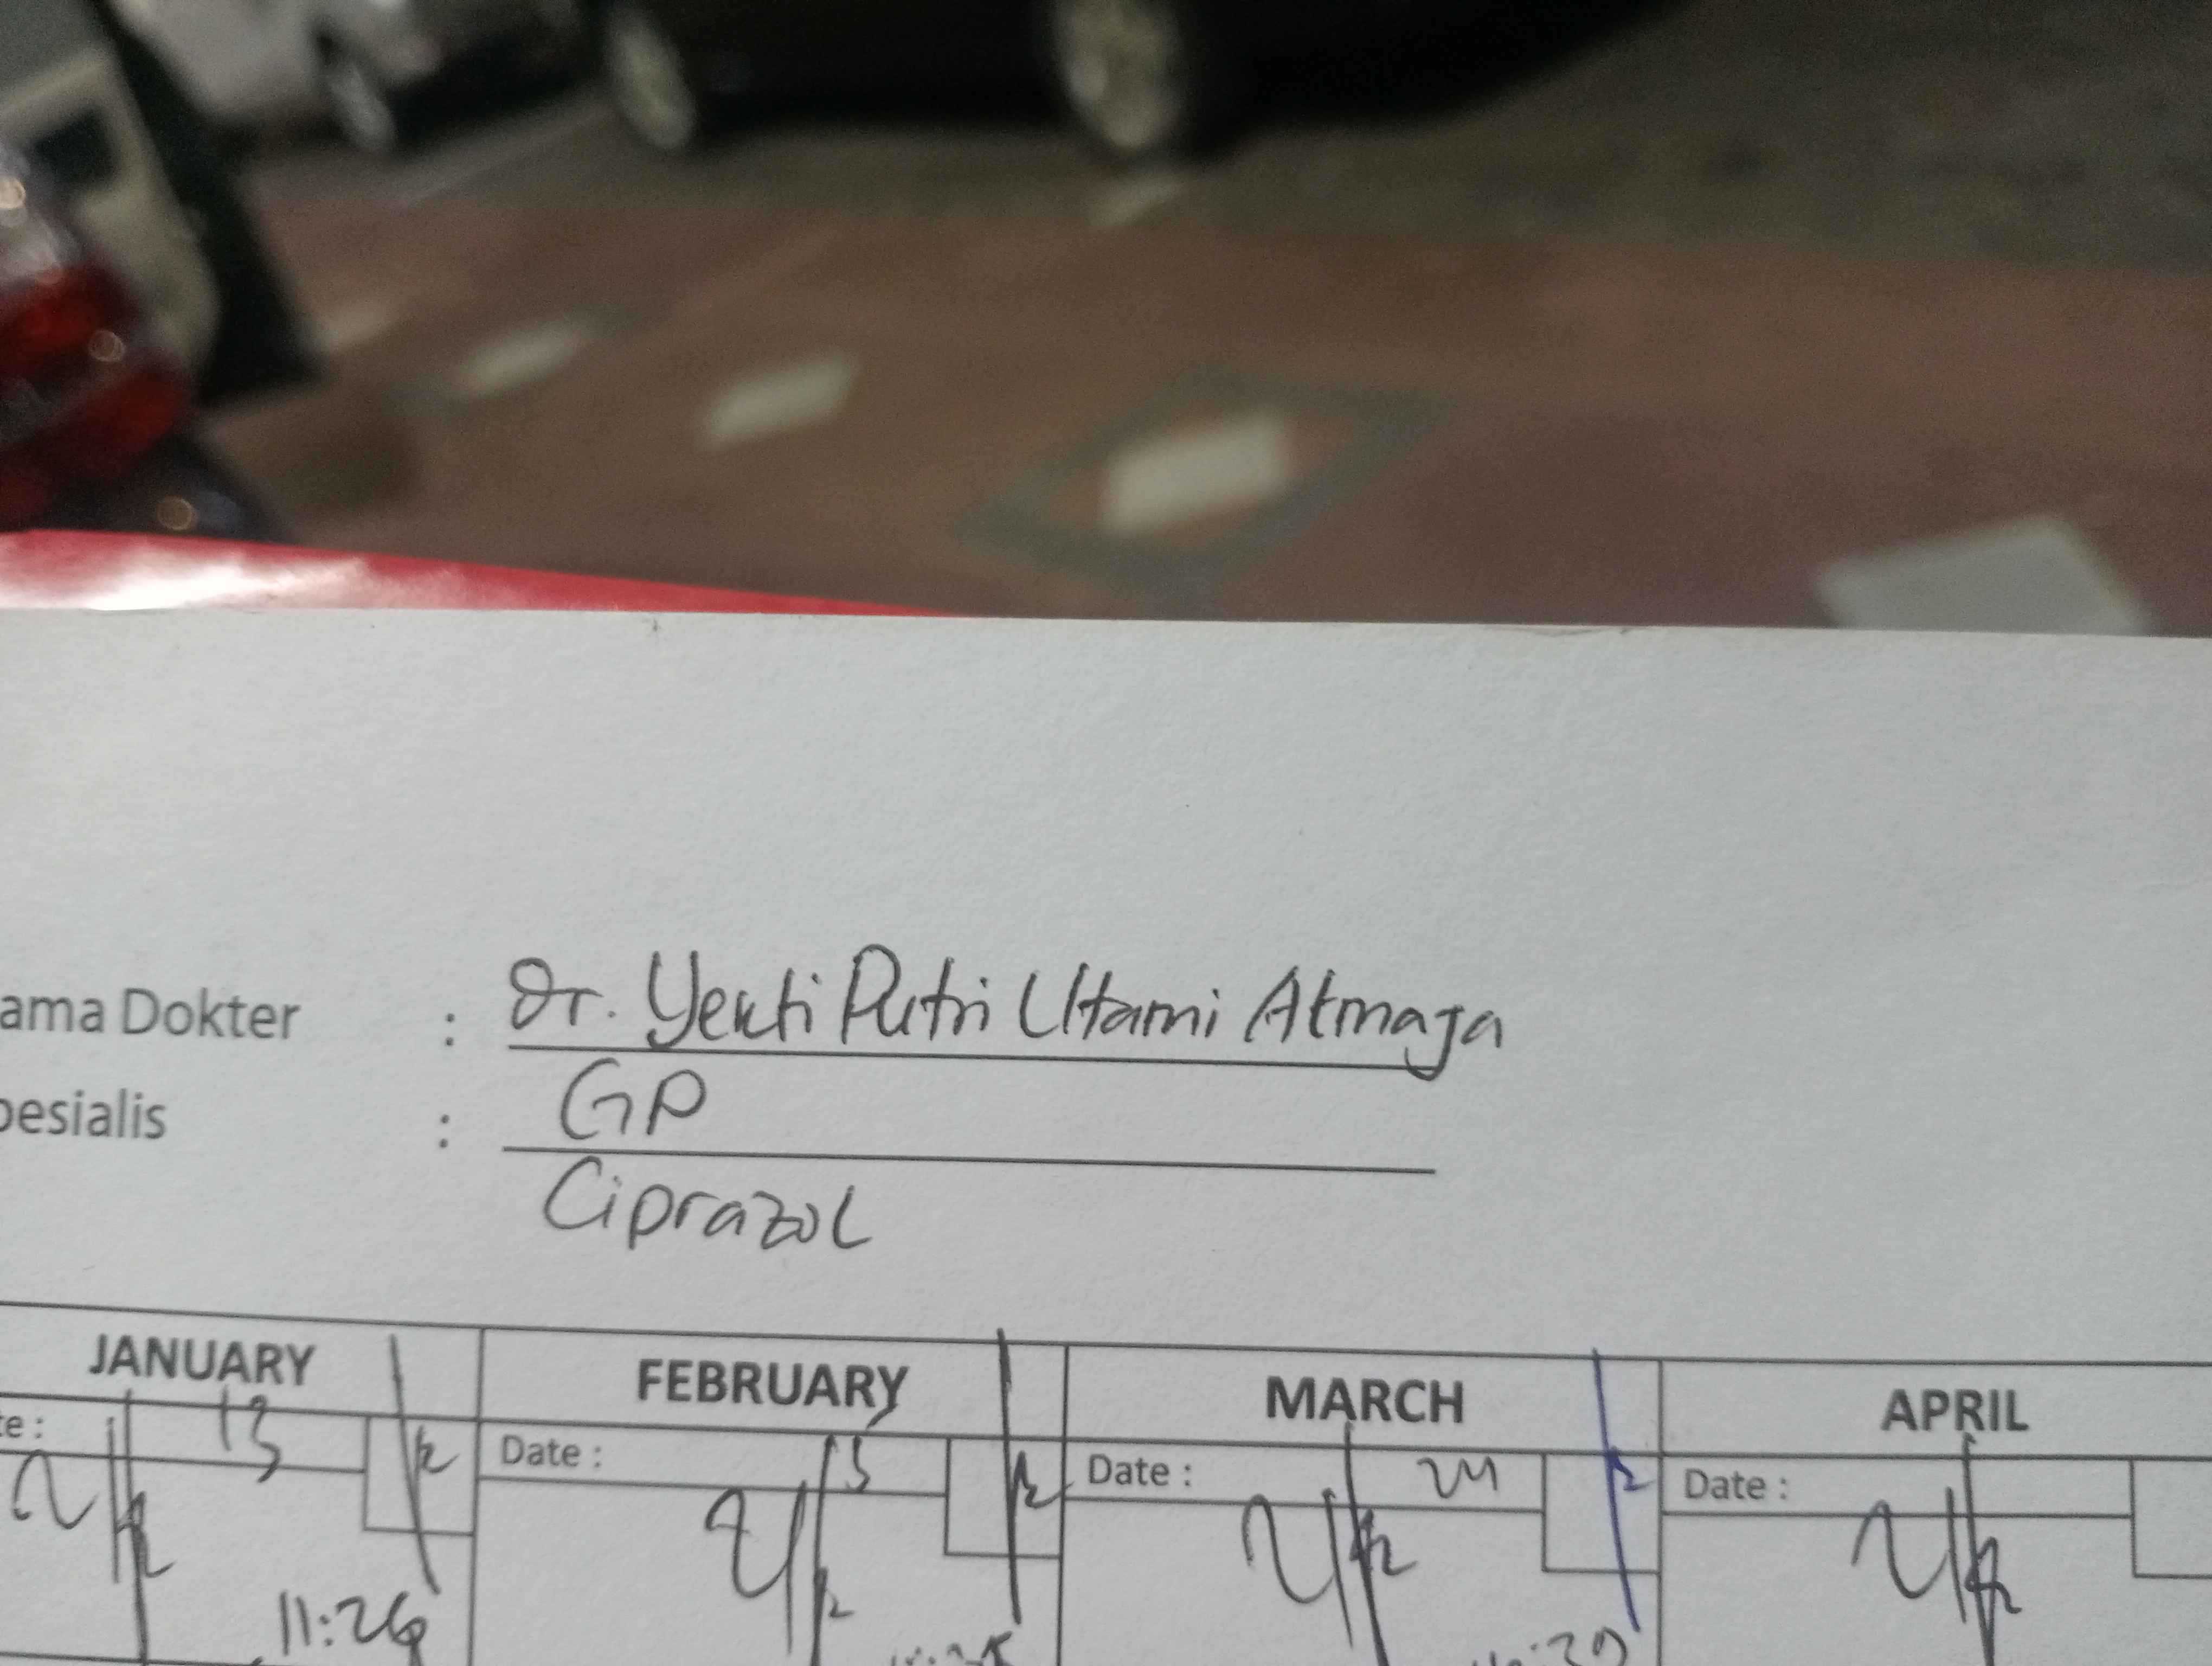 ama Dokter : Dr. Yekti Putri Utami Atmaja
pesialis : GP
Ciprazol
JANUARY FEBRUARY MARCH APRIL
te : 13 Date : 13 Date : 24 Date :
11:26